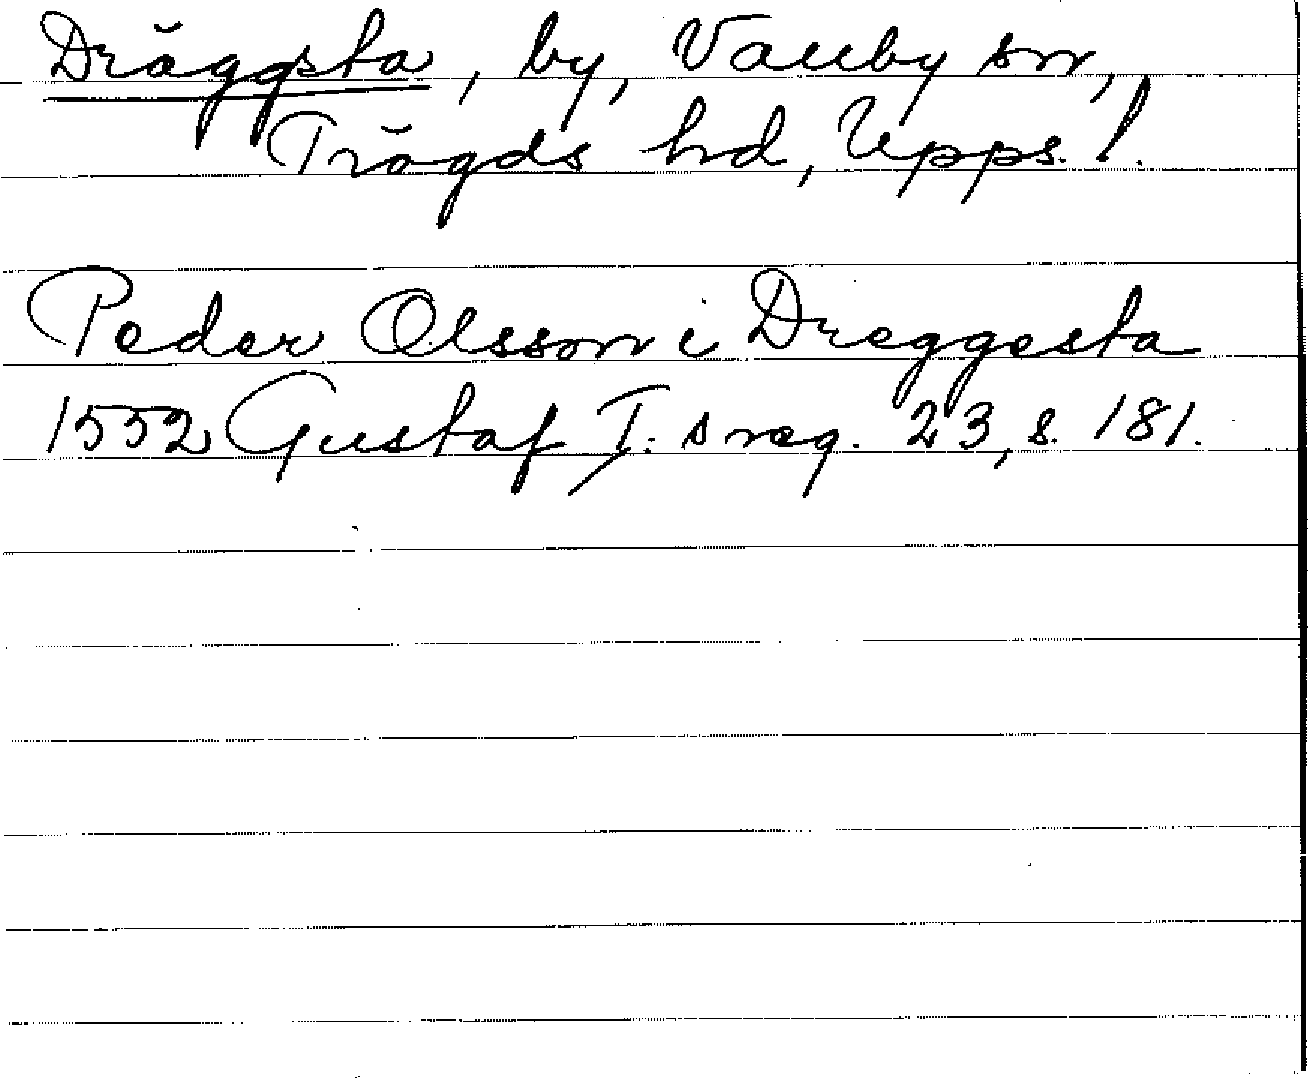 Dräggsta, by, Vallby sn,
Trögds hd, Upps. l.
Peder Olsson i Dreggesta
1552 Gustaf I:s reg. 23, s. 181.